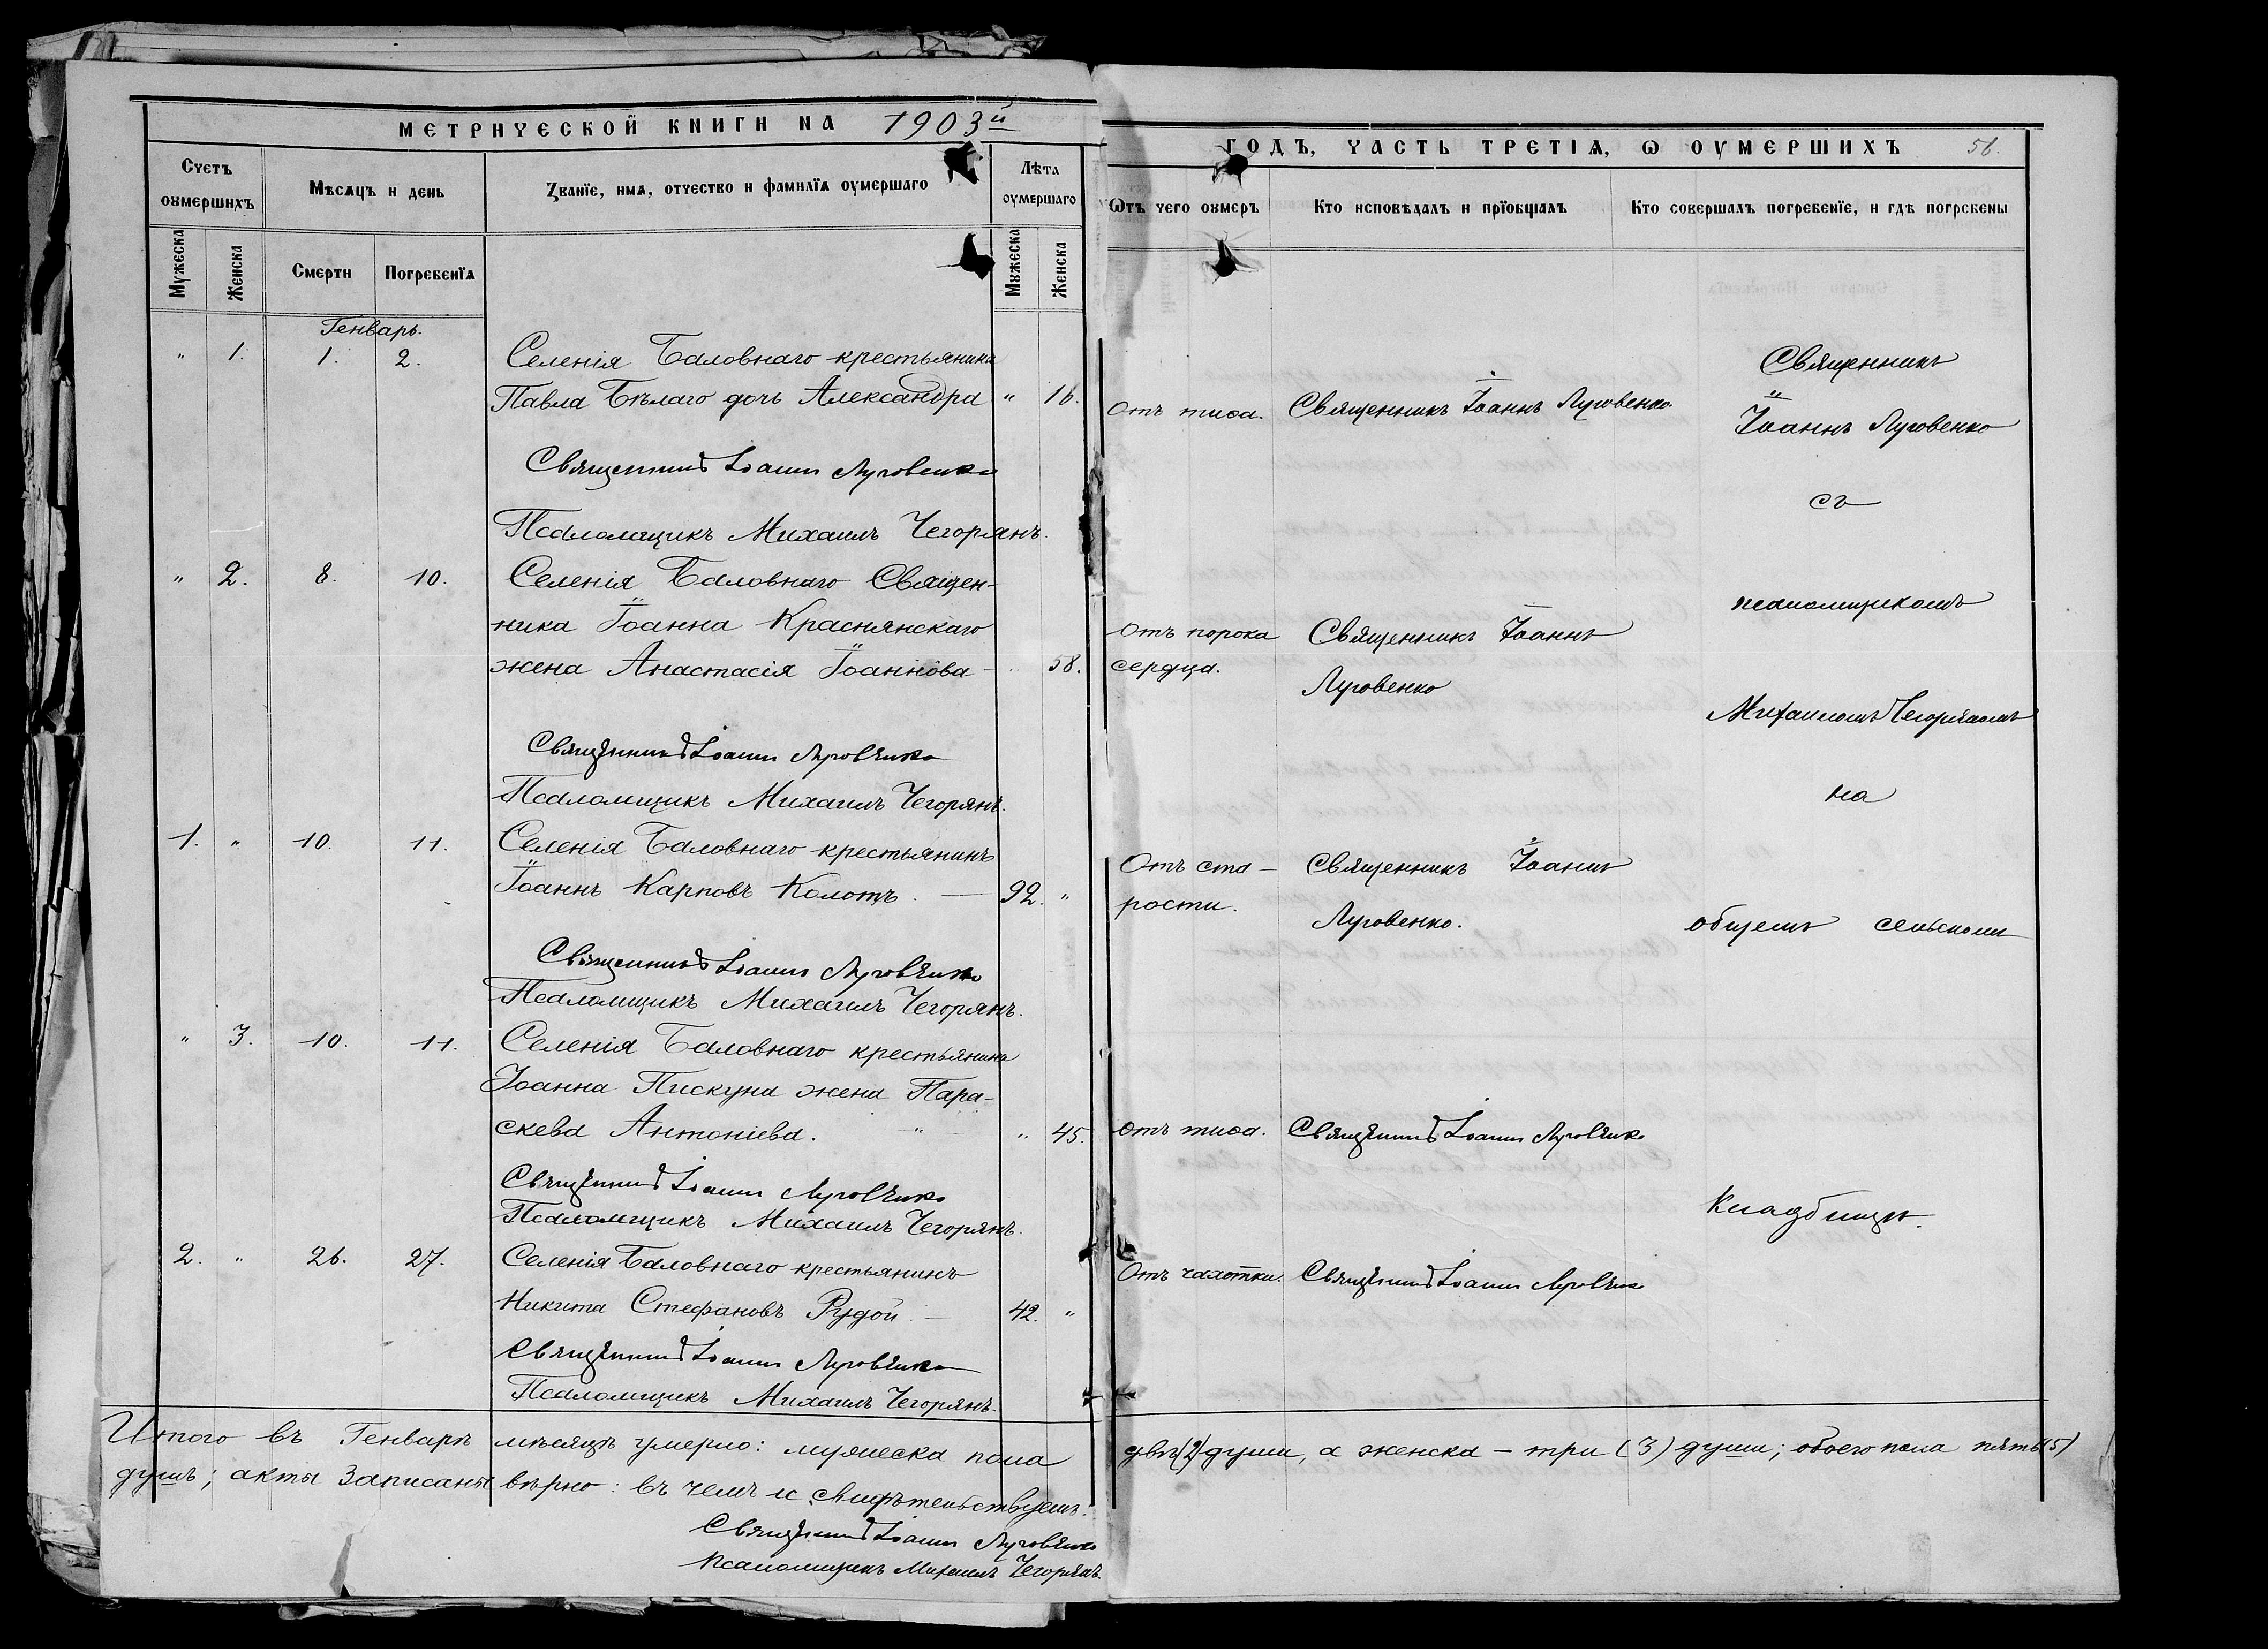 МЕТРИЧЕСКОЙ КНИГИ НА 1903й
ГОДЪ, ЧАСТЬ ТРЕТІѦ, Ѡ ОУМЕРШИХЪ 56.
Счетъ оумершихъ
Мѣсѧцъ и день
Званїе, имѧ, отчество и фамилїѧ оумершаго
Лѣта оумершаго
Ѿтъ чего оумеръ
Кто исповѣдалъ и прїобщалъ
Кто совершалъ погребенїе, и гдѣ погребены
Мужеска
Женска
Смерти
Погребенїѧ
Мужеска
Женска
Генварь.
" 1. 1. 2. Селенія Баловнаго крестьянина
Павла Бѣлаго дочь Александра " 16.
Отъ тифа. Священникъ Іоаннъ Луговенко.
Священникъ Іоаннъ Луговенко
Псаломщикъ Михаилъ Чегорянъ.
" 2. 8. 10. Селенія Баловнаго Священ-
ника Іоанна Краснянскаго
жена Анастасія Іоаннова - " 58.
Отъ порока
сердца.
Священникъ Іоаннъ
Луговенко
Священникъ Іоаннъ Луговенко
Псаломщикъ Михаилъ Чегорянъ.
1. " 10. 11. Селенія Баловнаго крестьянинъ
Іоаннъ Карповъ Колотъ. — 92. "
Отъ ста-
рости.
Священникъ Іоаннъ
Луговенко.
Священникъ Іоаннъ Луговенко
Псаломщикъ Михаилъ Чегорянъ.
" 3. 10. 11. Селенія Баловнаго крестьянина
Іоанна Пискуна жена Пара-
скева Антоніева. " " 45.
Отъ тифа. Священникъ Іоаннъ Луговенко
Священникъ Іоаннъ Луговенко
Псаломщикъ Михаилъ Чегорянъ.
2. " 26. 27. Селенія Баловнаго крестьянинъ
Никита Стефановъ Рудой. — 42. "
Отъ чахотки. Священникъ Іоаннъ Луговенко
Священникъ Іоаннъ Луговенко
Псаломщикъ Михаилъ Чегорянъ.
Священникъ
Іоаннъ Луговенко
съ
псаломщикомъ
Михаиломъ Чегоряномъ
на
общемъ сельскомъ
Кладбищѣ.
Итого въ Генварѣ мѣсяцѣ умерло: мужеска пола двѣ (2) души, а женска - три (3) души; обоего пола пять (5)
душъ; акты записаны вѣрно: въ чемъ и свидѣтельствуемъ:
Священникъ Іоаннъ Луговенко
Псаломщикъ Михаилъ Чегорянъ.